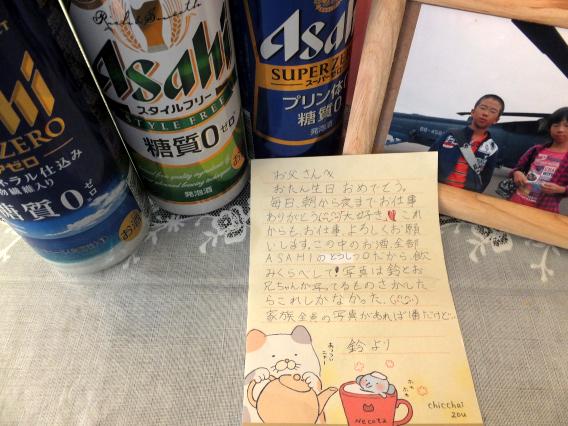 Asahi
ZERO
糖質0
お酒
Asahi
スタイルフリー
STYLE FREE
糖質0
ゼロ
発泡酒
お酒
Asahi
SUPER ZERO
スーパーゼロ
プリン体
糖質0
発泡酒
お父さんへ
おたん生日 おめでとう。
毎日、朝から夜までお仕事
ありがとう(^^)大好き♥これ
からも、お仕事、よろしくお願
いします。この中のお酒全部
ASAHIのとうしつ0だから、飲
みくらべして!写真は鈴とお
兄ちゃんが写ってるものさがした
らこれしかなかった。
家族全員の写真があれば1番だけど…
鈴より
chicchai
zou
Necota